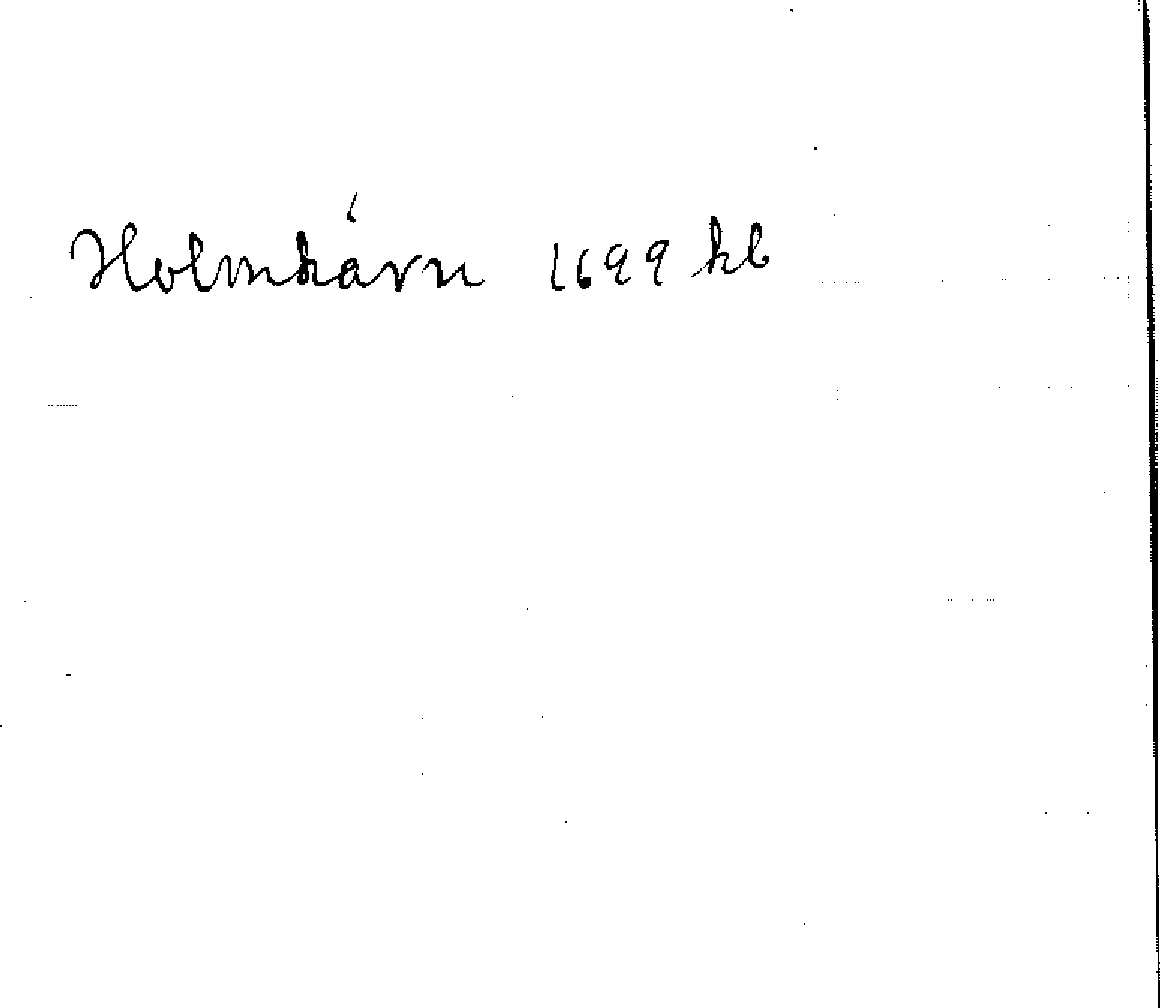 Holmkärn 1699 kb